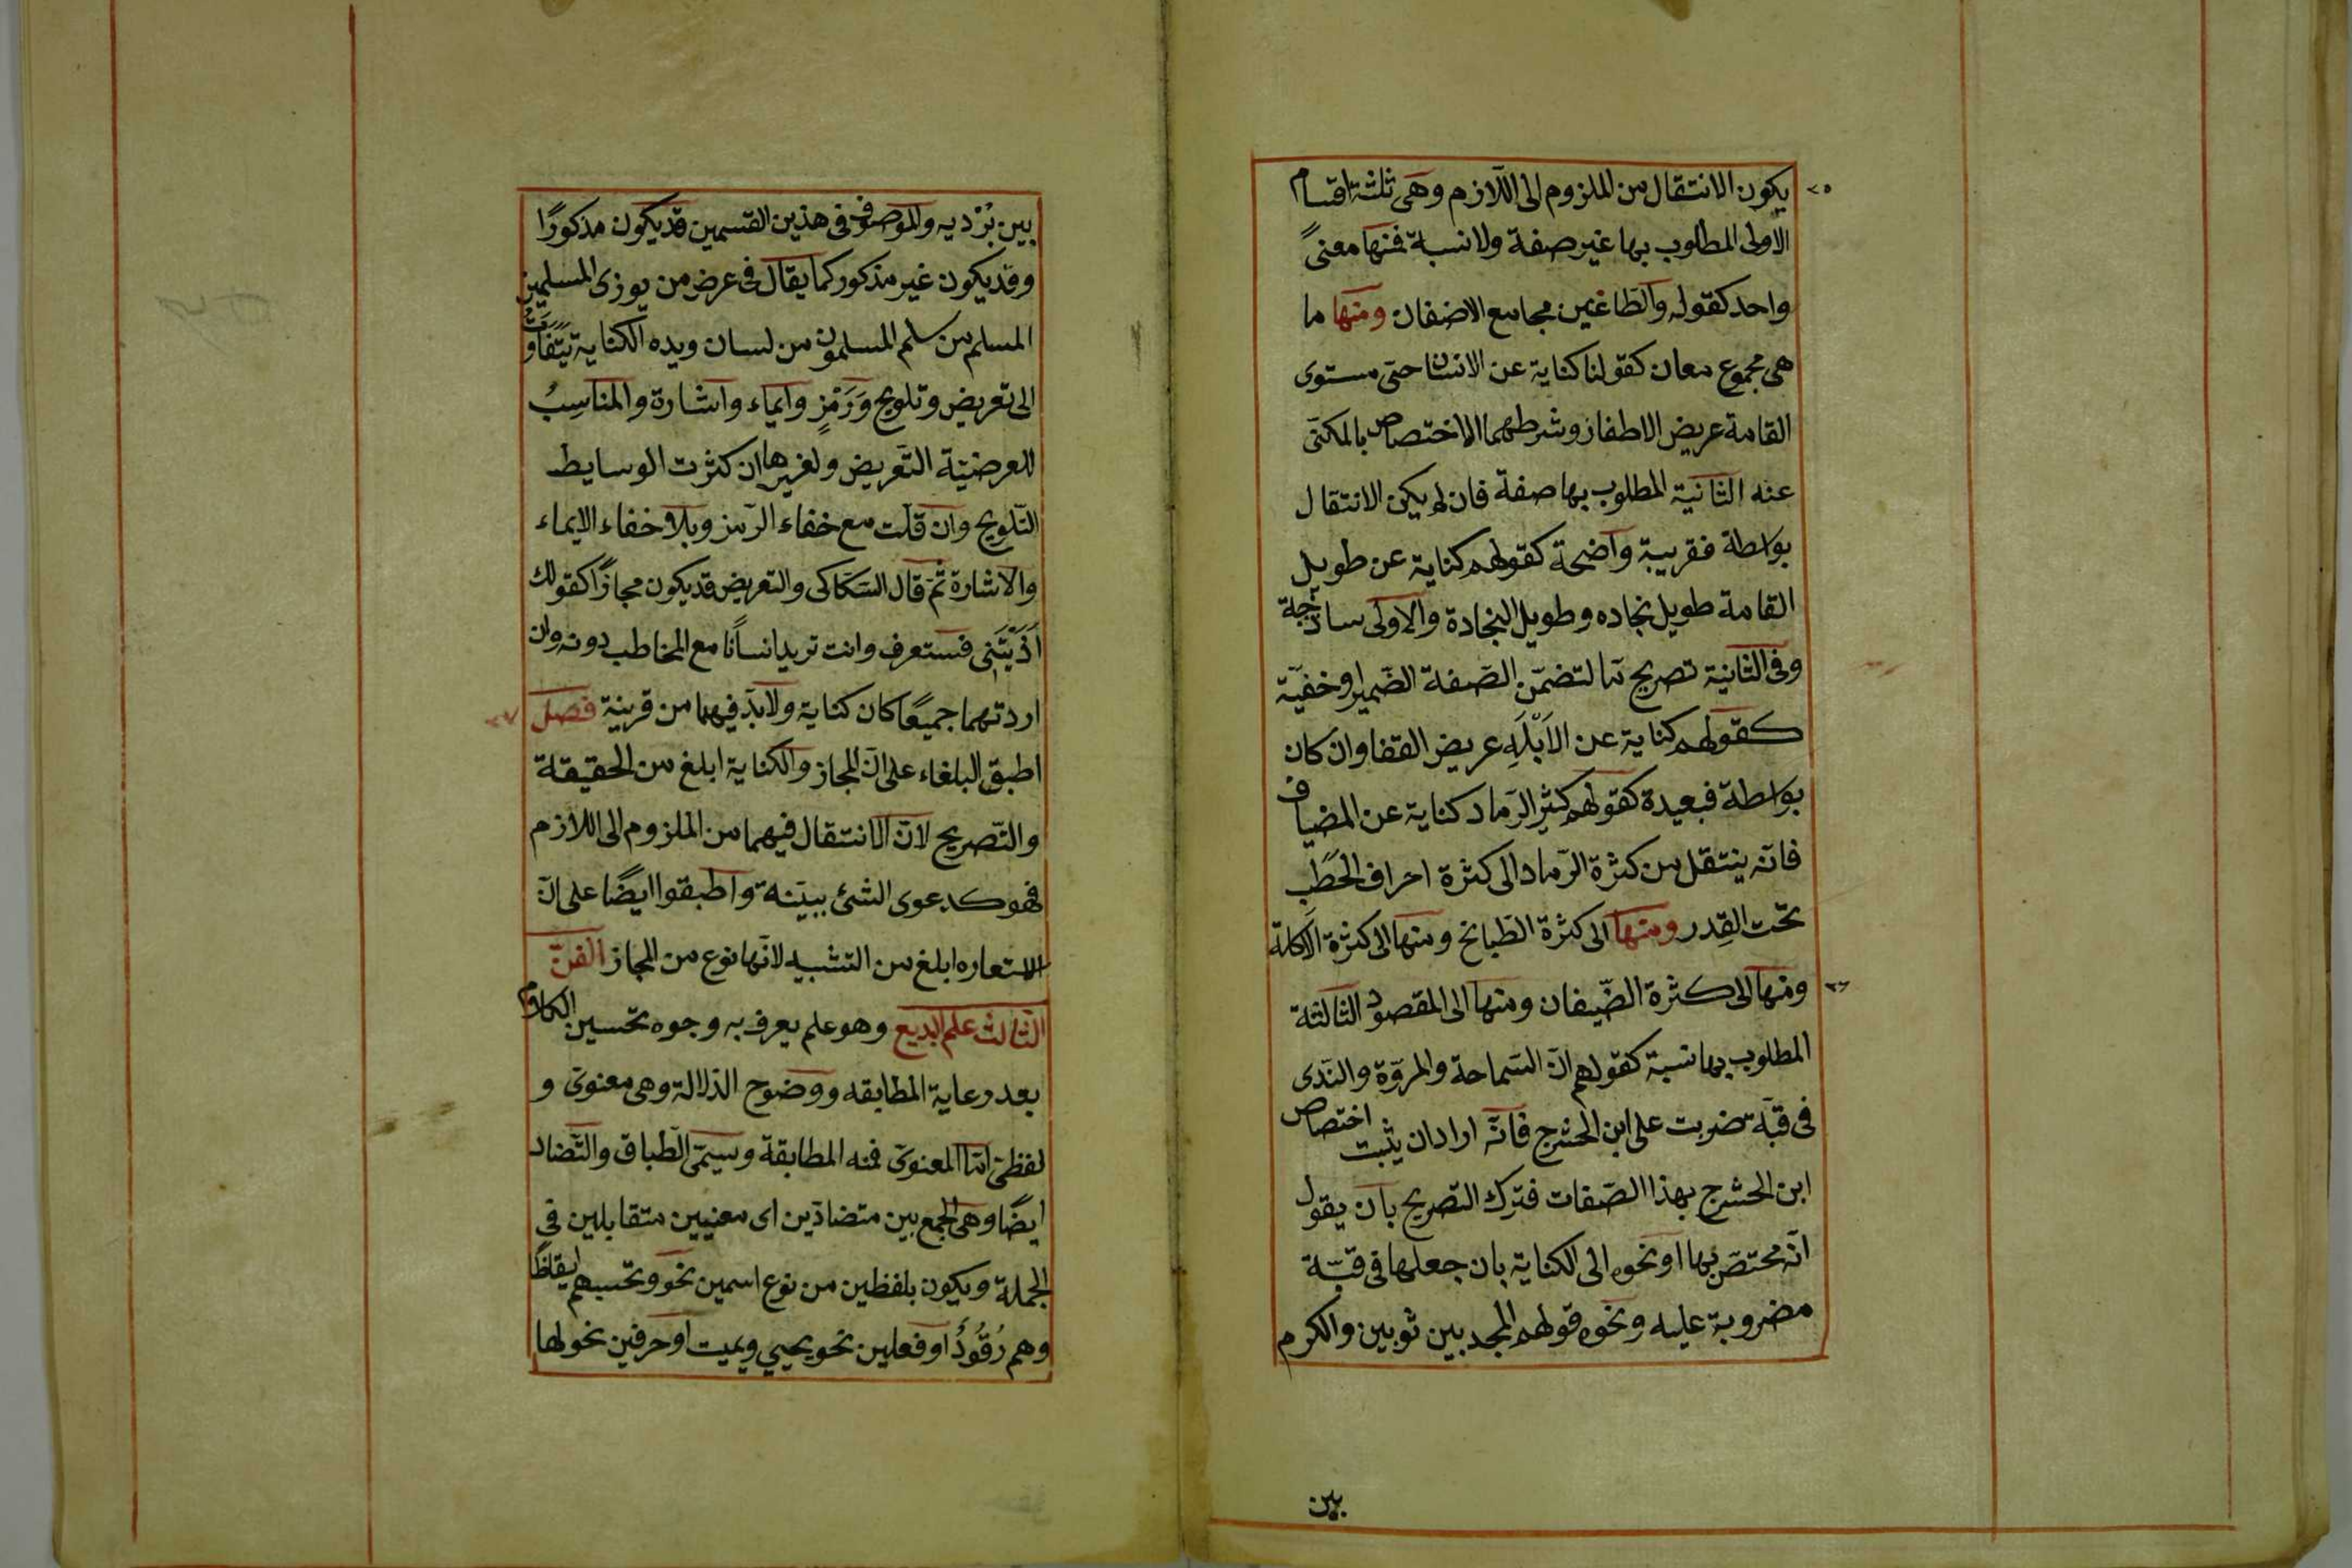 يكون الانتقال من الملزوم الى اللازم وهى ثلثة اقسام
الاولى المطلوب بها غير صفة ولا نسبة فمنها معنىً
واحد كقوله والطاعنين مجامع الاضغان ومنها ما
هى مجموع معان كقولنا كناية عن الانسان حتى مستوى
القامة عريض الاظفار وشرطهما الاختصاص بالمكنى
عنه الثانية المطلوب بها صفة فان لم يكن الانتقال
بواسطة فقريبة واضحة كقولهم كناية عن طويل
القامة طويل نجاده وطويل النجادة والاولى ساذجة
وفى الثانية تصريح ما لتضمّن الصّفة الضّمير او خفيّة
كقولهم كناية عن الاَبْلَهِ عريض القفا وان كان
بواسطة فبعيدة كقولهم كثير الرّماد كناية عن المضياف
فانّه ينتقل من كثرة الرّماد الى كثرة احراق الحَطَب
تحت القِدر ومنها الى كثرة الطّبائخ ومنها الى كثرة الاَكلة
ومنها الى كثرة الضّيفان ومنها الى المقصود الثالثة
المطلوب بها نسبة كقولهم انّ السّماحة والمروّة والنّدى
فى قبّة ضربت على ابن الحشرج فانّه اراد ان يثبت اختصاص
ابن الحشرج بهذا الصّفات فترك التصريح بان يقول
انّه مختصّ بها او نحوه الى الكناية بان جعلها فى قبّة
مضروبة عليه ونحوه قولهم المجد بين ثوبين والكرم
بين
بين بُرْديه والموصوف فى هذين القسمين قد يكون مذكورًا
وقد يكون غير مذكور كما يقال فى عرض من يوزى المسلمين
المسلم من سلم المسلمون من لسان ويده الكناية يَتَفَاوَتُ
الى تعريض وتلويح وَرَمْزٍ وايماء واشارة والمناسِبُ
للعرضيّة التّعريض ولغيرها ان كثرت الوسايط
التّلويح وان قلّت مع خفاء الرّمز وبلا خفاء الايماء
والاشارة ثمّ قال السّكاكى والتعريض قد يكون مجازًا كقولك
اَذَيْتَنِى فستعرف وانت تريد انسانًا مع المخاطب دونه وان
اردتهما جميعًا كان كناية ولابدّ فيهما من قرينة فصل
اطبق البلغاء على انّ المجاز والكناية ابلغ من الحقيقة
والتّصريح لانّ الانتقال فيهما من الملزوم الى اللازم
فهو كدعوى الشئ ببيّنة واطبقوا ايضًا على انّ
الاستعاره ابلغ من التشبيه لانّها نوع من المجاز الفنّ
الثّالث علم البديع وهو علم يعرف به وجوه تحسين الكلام
بعد رعاية المطابقه ووضوح الدّلالة وهى معنوىّ و
لفظىّ امّا المعنوىّ فمنه المطابقة ويسمّى الطّباق والتّضاد
ايضًا وهى الجمع بين متضادّين اى معنيين متقابلين فى
الجملة ويكون بلفظين من نوع اسمين نحو وتحسبهم ايقاظًا
وهم رُقُودٌ او فعلين نحو يحيي ويميت او حرفين نحو لها